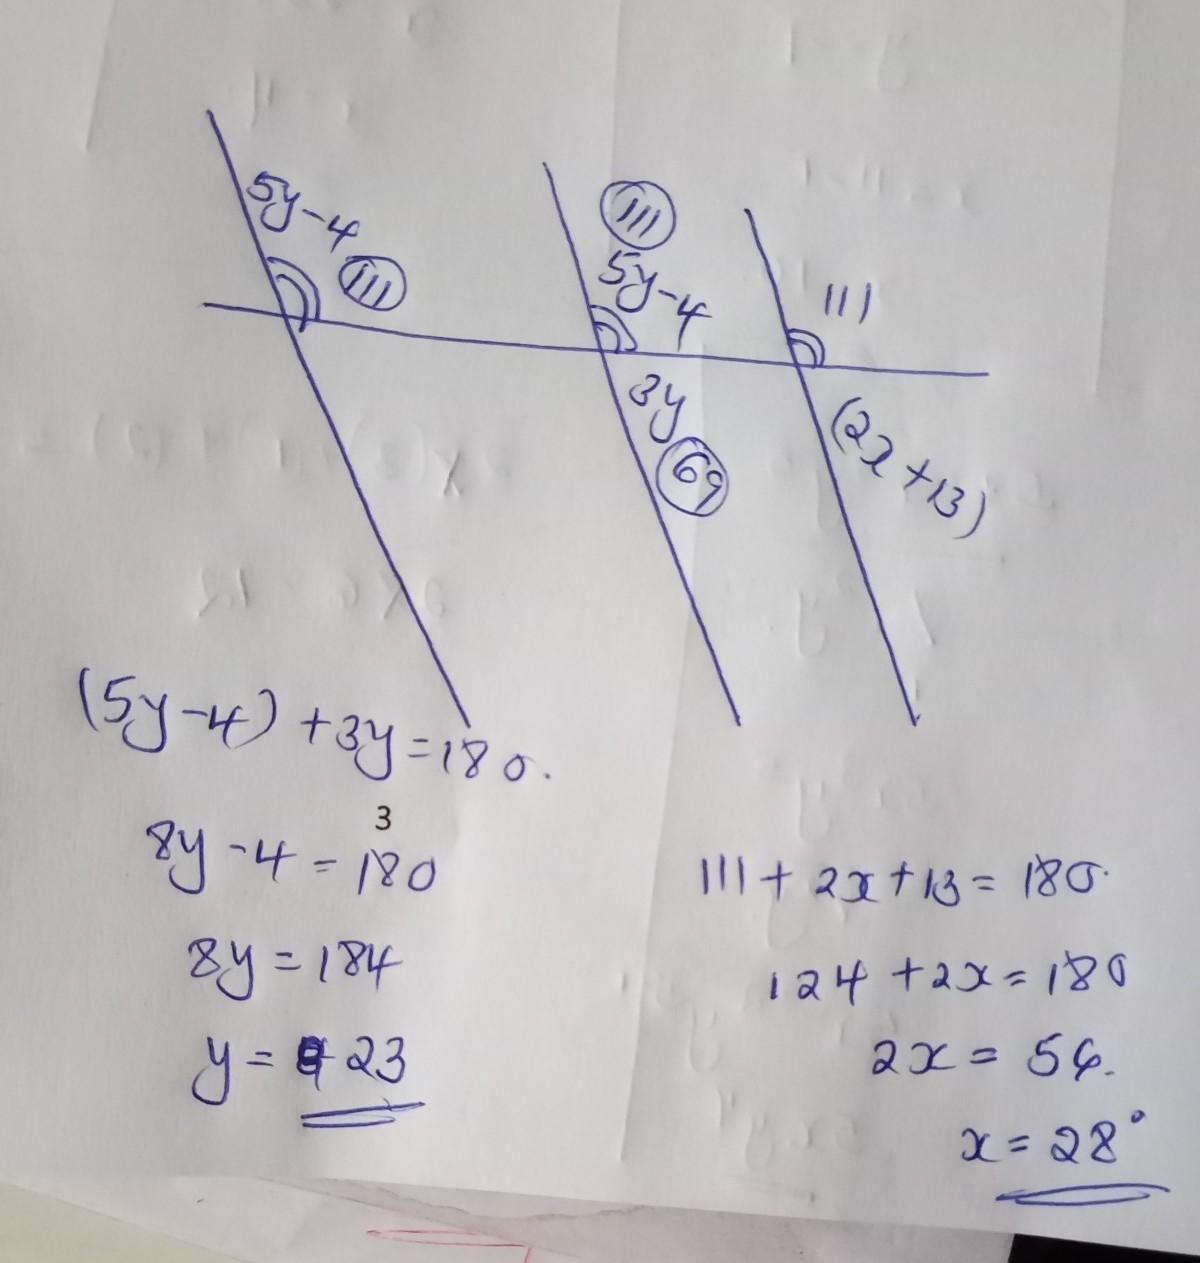 5y-4
111
111
5y-4
111
3y
69
(2x+13)
(5y-4) +3y=180.
3
8y-4=180
8y=184
y= 23
111+2x+13=180.
124+2x=180
2x=56.
x=28°